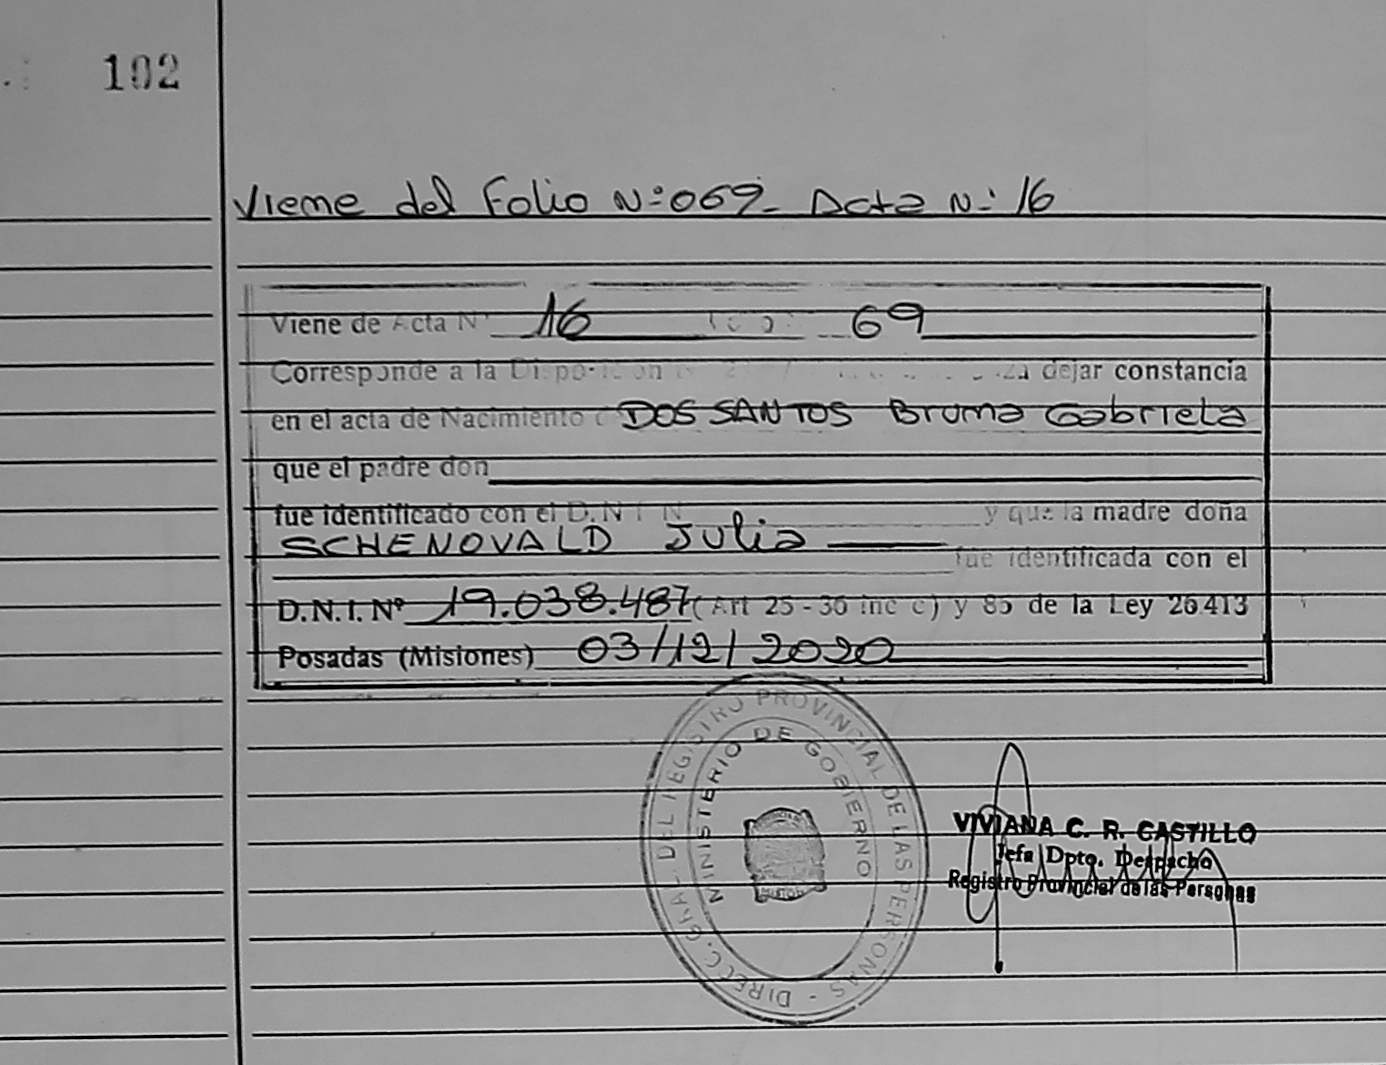 102
Viene del Folio N:069- Acta N: 16
Viene de Acta Nº 16 69
Corresponde a la Disposición dejar constancia
en el acta de Nacimiento DOS SANTOS Bruna Gabriela
que el padre don
fue identificado con el D.N.I. N y que la madre doña
SCHENOVALD Julia
fue identificada con el
D.N.I. Nº 19.038.487 (Art 25 - 36 inc c) y 85 de la Ley 26413
Posadas (Misiones) 03/12/2020
DIRECC. GRAL. DEL REGISTRO PROVINCIAL DE LAS PERSONAS -
MINISTERIO DE GOBIERNO
VIVIANA C. R. CASTILLO
Jefa Dpto. Despacho
Registro Provincial de las Personas